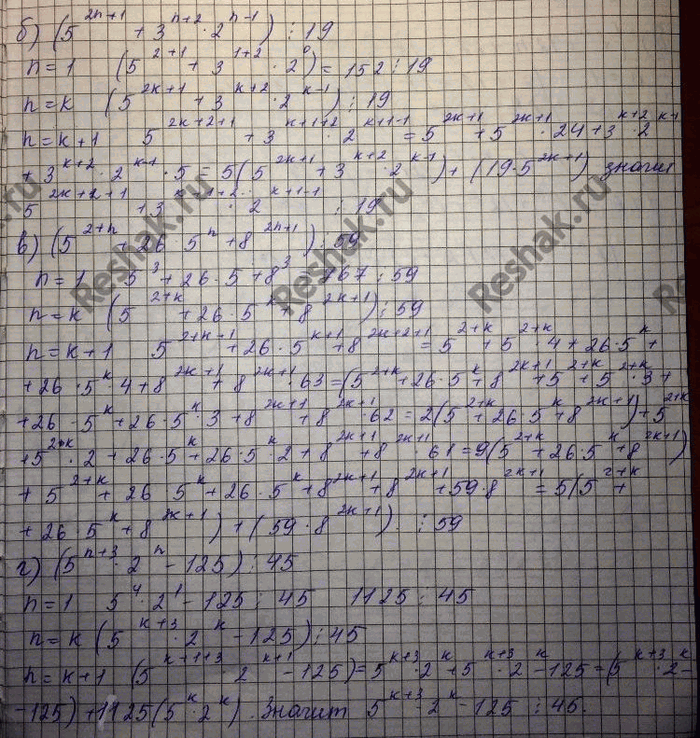 б) (5^{2n+1} + 3^{n+2} · 2^{n-1}) ⋮ 19
n=1 (5^{2+1} + 3^{1+2} · 2^0) = 152 ⋮ 19
n=k (5^{2k+1} + 3^{k+2} · 2^{k-1}) ⋮ 19
n=k+1 5^{2k+2+1} + 3^{k+1+2} · 2^{k+1-1} = 5^{2k+1} + 5^{2k+1} · 24 + 3^{k+2} · 2^{k-1}
+ 3^{k+2} · 2^{k-1} · 5 = 5(5^{2k+1} + 3^{k+2} · 2^{k-1}) + (19 · 5^{2k+1}) значит
5^{2k+2+1} + 3^{k+1+2} · 2^{k+1-1} ⋮ 19
в) (5^{2+n} + 26 · 5^n + 8^{2n+1}) ⋮ 59
n=1 5^3 + 26 · 5 + 8^3 767 ⋮ 59
n=k (5^{2+k} + 26 · 5^k + 8^{2k+1}) ⋮ 59
n=k+1 5^{2+k+1} + 26 · 5^{k+1} + 8^{2k+2+1} = 5^{2+k} + 5^{2+k} · 4 + 26 · 5^k +
+ 26 · 5^k · 4 + 8^{2k+1} + 8^{2k+1} · 63 = (5^{2+k} + 26 · 5^k + 8^{2k+1} + 5^{2+k} + 5^{2+k} · 3 +
+ 26 · 5^k + 26 · 5^k · 3 + 8^{2k+1} + 8^{2k+1} · 62 = 2(5^{2+k} + 26 · 5^k + 8^{2k+1}) + 5^{2+k}
+ 5^{2+k} · 2 + 26 · 5^k + 26 · 5^k · 2 + 8^{2k+1} + 8^{2k+1} · 61 = 9(5^{2+k} + 26 · 5^k + 8^{2k+1})
+ 5^{2+k} + 26 5^k + 26 · 5^k + 8^{2k+1} + 8^{2k+1} + 59 · 8^{2k+1} = 5(5^{2+k} +
+ 26 · 5^k + 8^{2k+1}) + (59 · 8^{2k+1}) ⋮ 59
г) (5^{n+3} · 2^n - 125) ⋮ 45
n=1 5^4 · 2^1 - 125 ⋮ 45 1125 ⋮ 45
n=k (5^{k+3} · 2^k - 125) ⋮ 45
n=k+1 (5^{k+1+3} · 2^{k+1} - 125) = 5^{k+3} · 2^k + 5^{k+3} · 2^k - 125 = (5^{k+3} · 2^k -
- 125) + 1125(5^k · 2^k). Значит 5^{k+3} · 2^k - 125 ⋮ 45.
Reshak.ru
Reshak.ru
Reshak.ru